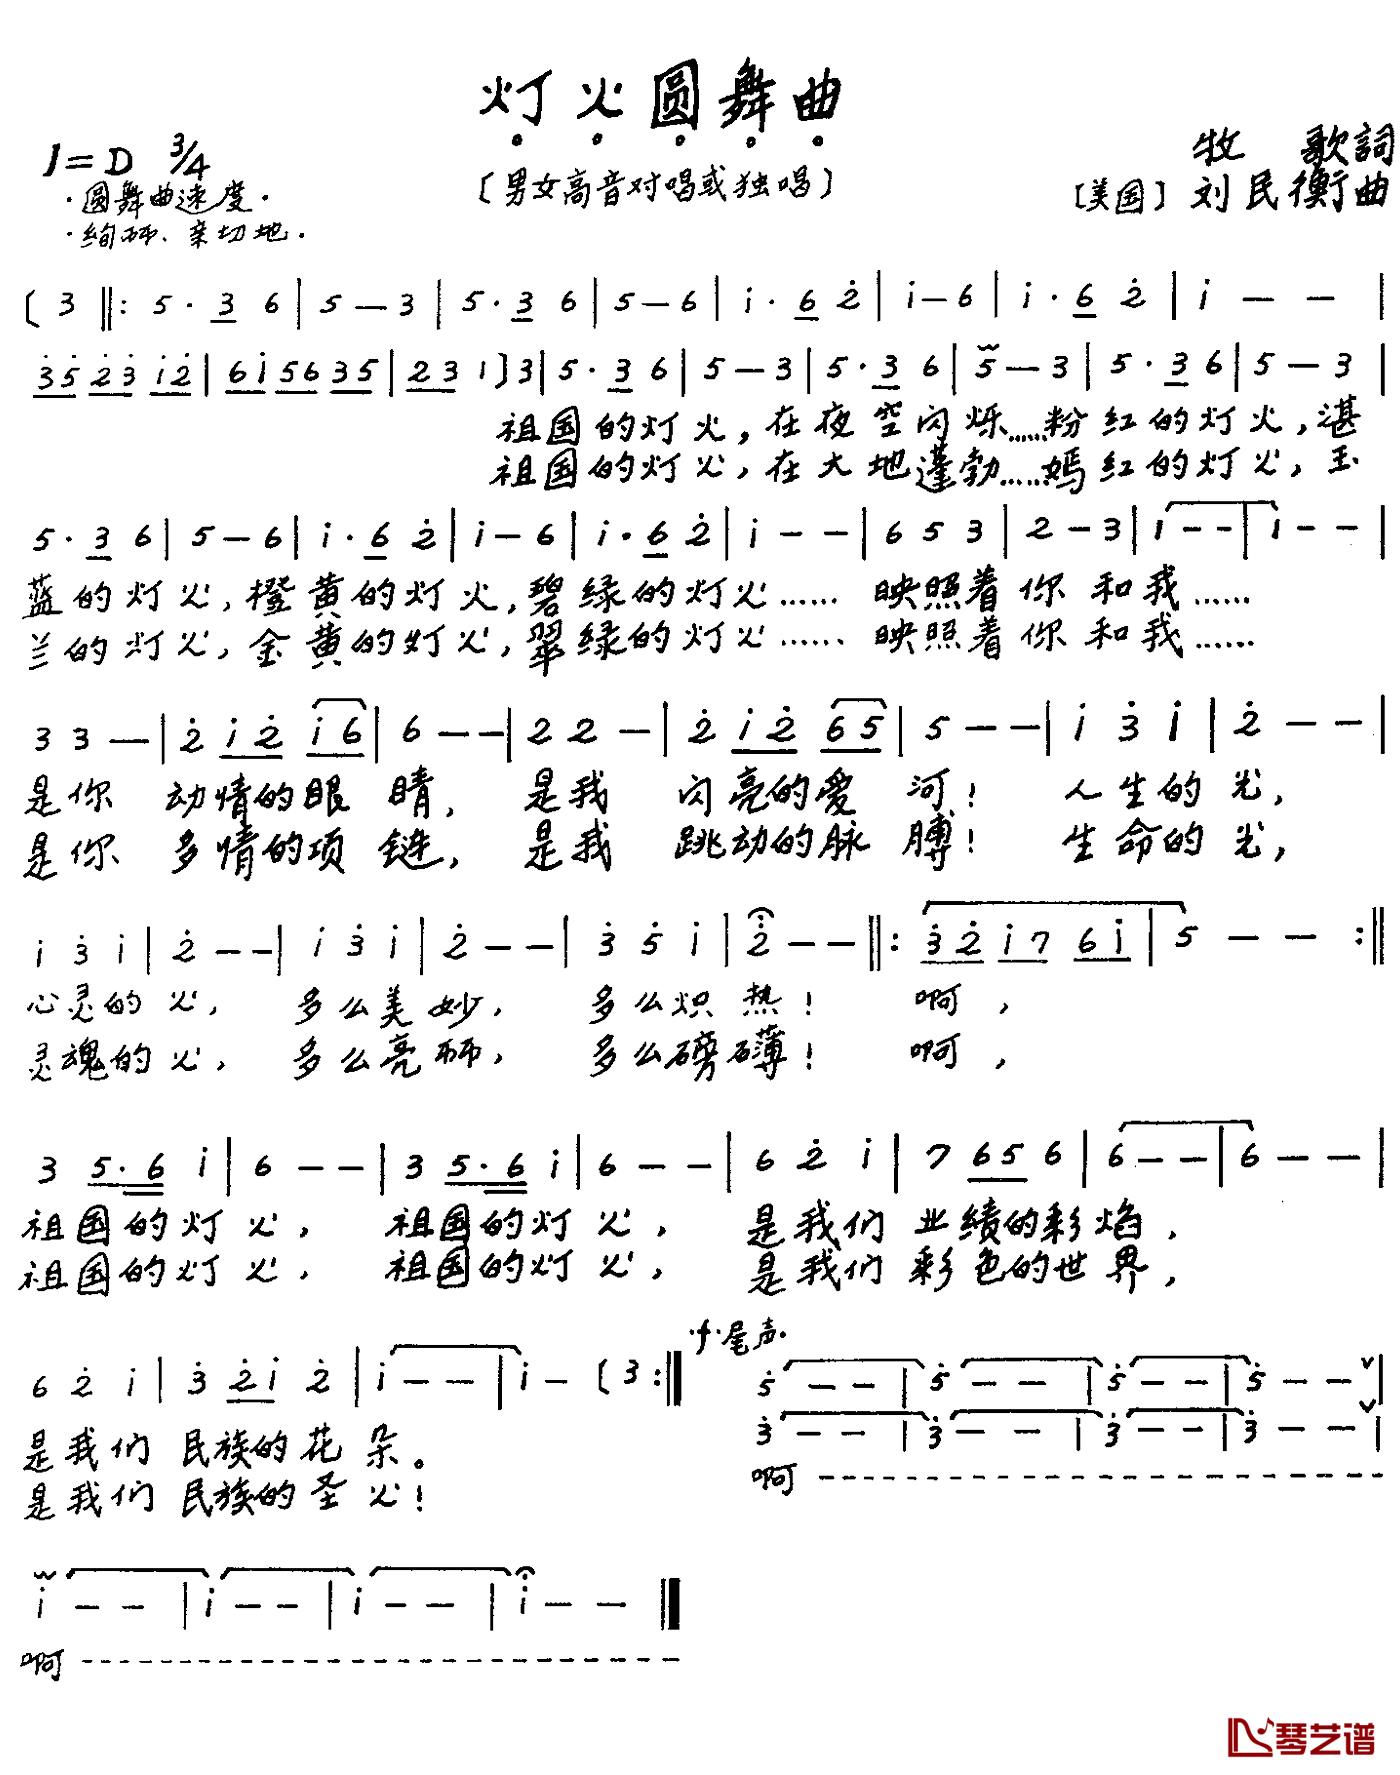 灯火圆舞曲
1=D 3/4
牧 歌詞
·圆舞曲速度·
〔男女高音对唱或独唱〕
[美国] 刘民衡曲
·绚丽、亲切地·
〔3 ‖: 5 · 3 6 | 5 — 3 | 5 · 3 6 | 5 — 6 | i · 6 2̇ | i — 6 | i · 6 2̇ | i — — |
3̇5̇ 2̇3̇ i2̇ | 6i 56 35 | 23 1 〕3 | 5 · 3 6 | 5 — 3 | 5 · 3 6 | 5 — 3 | 5 · 3 6 | 5 — 3 |
祖国的灯火,在夜空闪烁……粉红的灯火,湛
祖国的灯火,在大地蓬勃……嫣红的灯火,玉
5 · 3 6 | 5 — 6 | i · 6 2̇ | i — 6 | i · 6 2̇ | i — — | 6 5 3 | 2 — 3 | 1 — — | 1 — — |
蓝的灯火,橙黄的灯火,碧绿的灯火…… 映照着你和我……
兰的灯火,金黄的灯火,翠绿的灯火…… 映照着你和我……
3 3 — | 2̇ i2̇ i6 | 6 — — | 2 2 — | 2̇ i2̇ 65 | 5 — — | i 3̇ i | 2̇ — — |
是你 动情的眼睛, 是我 闪亮的爱河! 人生的光,
是你 多情的项链, 是我 跳动的脉膊! 生命的光,
i 3̇ i | 2̇ — — | i 3̇ i | 2̇ — — | 3̇ 5̇ i | 2̇ — — ‖: 3̇2̇ i7 6i | 5 — — :‖
心灵的火, 多么美妙, 多么炽热! 啊,
灵魂的火, 多么亮丽, 多么磅礴! 啊,
3 5·6 i | 6 — — | 3 5·6 i | 6 — — | 6 2̇ i | 7 65 6 | 6 — — | 6 — — |
祖国的灯火, 祖国的灯火, 是我们业绩的彩焰,
祖国的灯火, 祖国的灯火, 是我们彩色的世界,
·f·尾声·
6 2̇ i | 3̇ 2̇i 2̇ | i — — | i — 〔3 :‖ 5̇ — — | 5̇ — — | 5̇ — — | 5̇ — — |
3̇ — — | 3̇ — — | 3̇ — — | 3̇ — — |
是我们民族的花朵。
啊
是我们民族的圣火!
i — — | i — — | i — — | i — — ‖
啊
琴艺谱